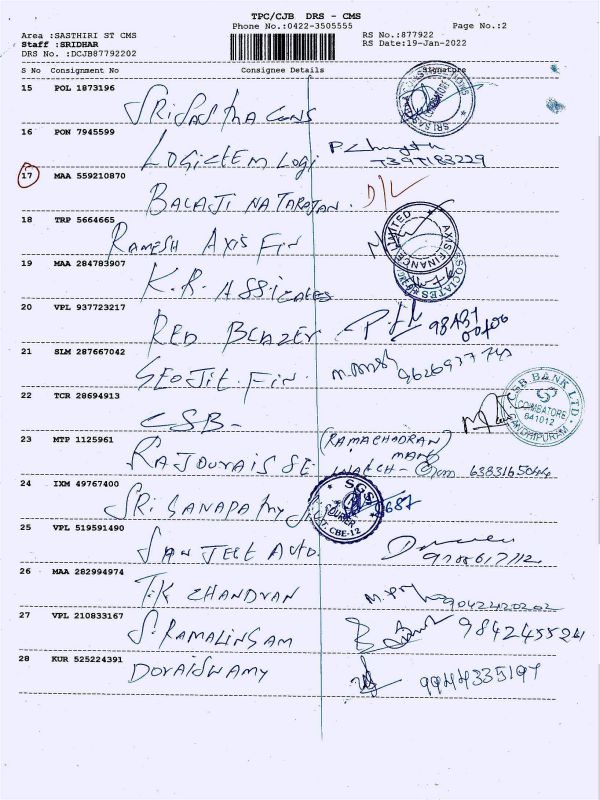 TPC/CJB DRS - CMS
Phone No.:0422-3505555
Page No.:2
Area :SASTHIRI ST CMS
Staff :SRIDHAR
DRS No. :DCJB87792202
RS No.:877922
RS Date:19-Jan-2022
S No Consignment No Consignee Details Signature
15 POL 1873196
SRI SASTHA CONS
16 PON 7945599
LOGICTEM LOGI
17 MAA 559210870
BALAJI NATARAJAN. D/L
18 TRP 5664665
RAMESH AXIS FIN
AXIS FINANCE LIMITED
19 MAA 284783907
K.R. ASSICATES
20 VPL 937723217
RED BLAZER
21 SLM 287667042
GEOJIT FIN.
22 TCR 28694913
CSB -
CSB BANK LTD.
COIMBATORE
641012
23 MTP 1125961
(RAMACHADRAN)
RAJDURAIS SE
24 IXM 49767400
SRI GANAPATHY
SGS
COURIER
CBE-12
25 VPL 519591490
SANJEEE AUTO.
26 MAA 282994974
T.K CHANDVAN
27 VPL 210833167
S. RAMALINGAM 984245524
28 KUR 525224391
DORAISWAMY 9944335197